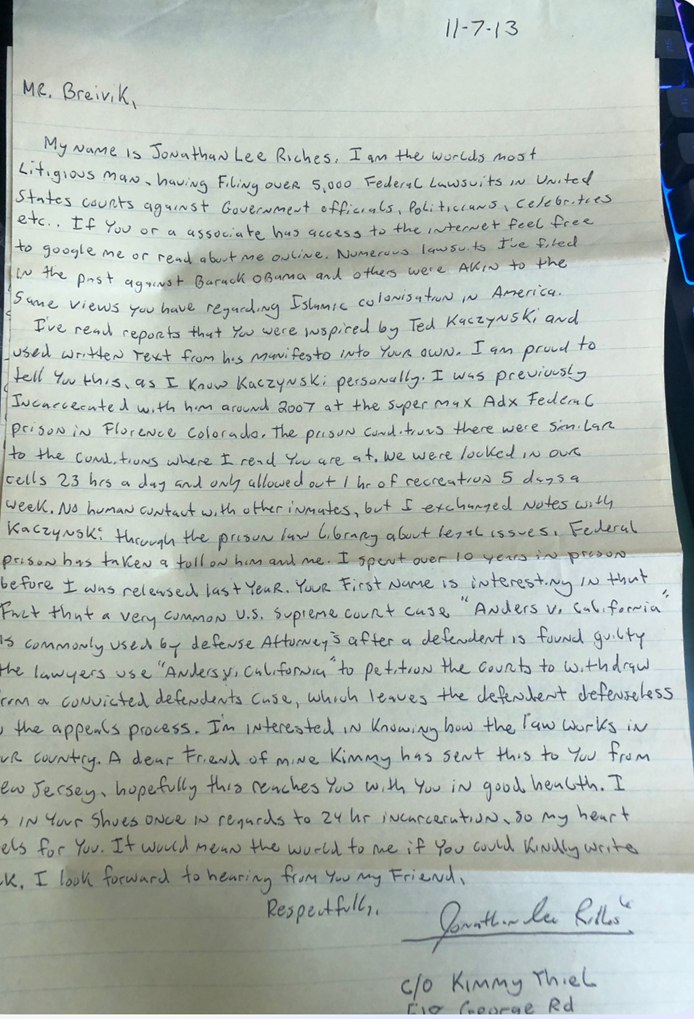 11-7-13
MR. Breivik,
My name is Jonathan Lee Riches. I am the worlds most
Litigious man, having Filing over 5,000 Federal Lawsuits in United
States courts against Government officials, Politicians, celebrities
etc.. If You or a associate has access to the internet feel free
to google me or read about me online. Numerous lawsuits I've filed
in the past against Barack Obama and others were AKIN to the
Same views you have regarding Islamic colonisation in America.
I've read reports that You were inspired by Ted Kaczynski and
used written text from his manifesto into Your own. I am proud to
tell You this, as I know Kaczynski personally. I was previously
Incarcerated with him around 2007 at the super max Adx Federal
prison in Florence Colorado. The prison conditions there were similar
to the conditions where I read You are at. We were locked in our
cells 23 hrs a day and only allowed out 1 hr of recreation 5 days a
week. No human contact with other inmates, but I exchanged notes with
Kaczynski through the prison law library about legal issues. Federal
prison has taken a toll on him and me. I spent over 10 years in prison
before I was released last Year. Your First Name is interesting in that
Fact that a very common U.S. Supreme court case "Anders v. California"
is commonly used by defense Attorney's after a defendent is found guilty
the lawyers use "Anders v. California" to petition the courts to withdraw
a convicted defendents case, which leaves the defendent defenseless
the appeals process. I'm interested in knowing how the law works in
country. A dear Friend of mine Kimmy has sent this to You from
Jersey, hopefully this reaches You with You in good health. I
in Your shoes once in regards to 24 hr incarceration, so my heart
for You. It would mean the world to me if You could kindly write
I look forward to hearing from You my Friend,
Respectfully,
Jonathan Lee Riches
c/o Kimmy Thiel
George Rd